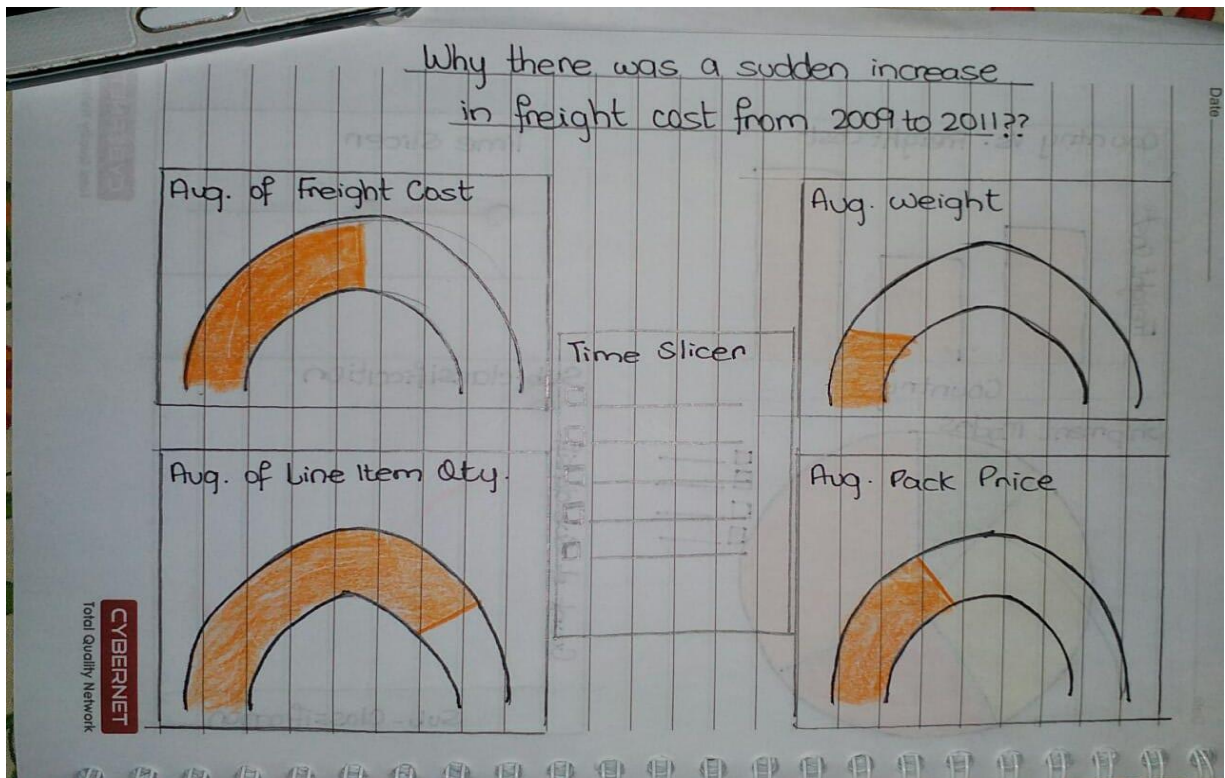 Why there was a sudden increase
in freight cost from 2009 to 2011??
Avg. of Freight Cost
Avg. weight
Time Slicer
Avg. of Line Item Qty.
Avg. Pack Price
CYBERNET
Total Quality Network
Date